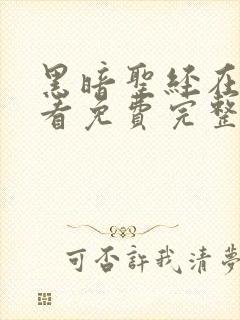 黑暗聖經在
看免費完整
可否許我清夢